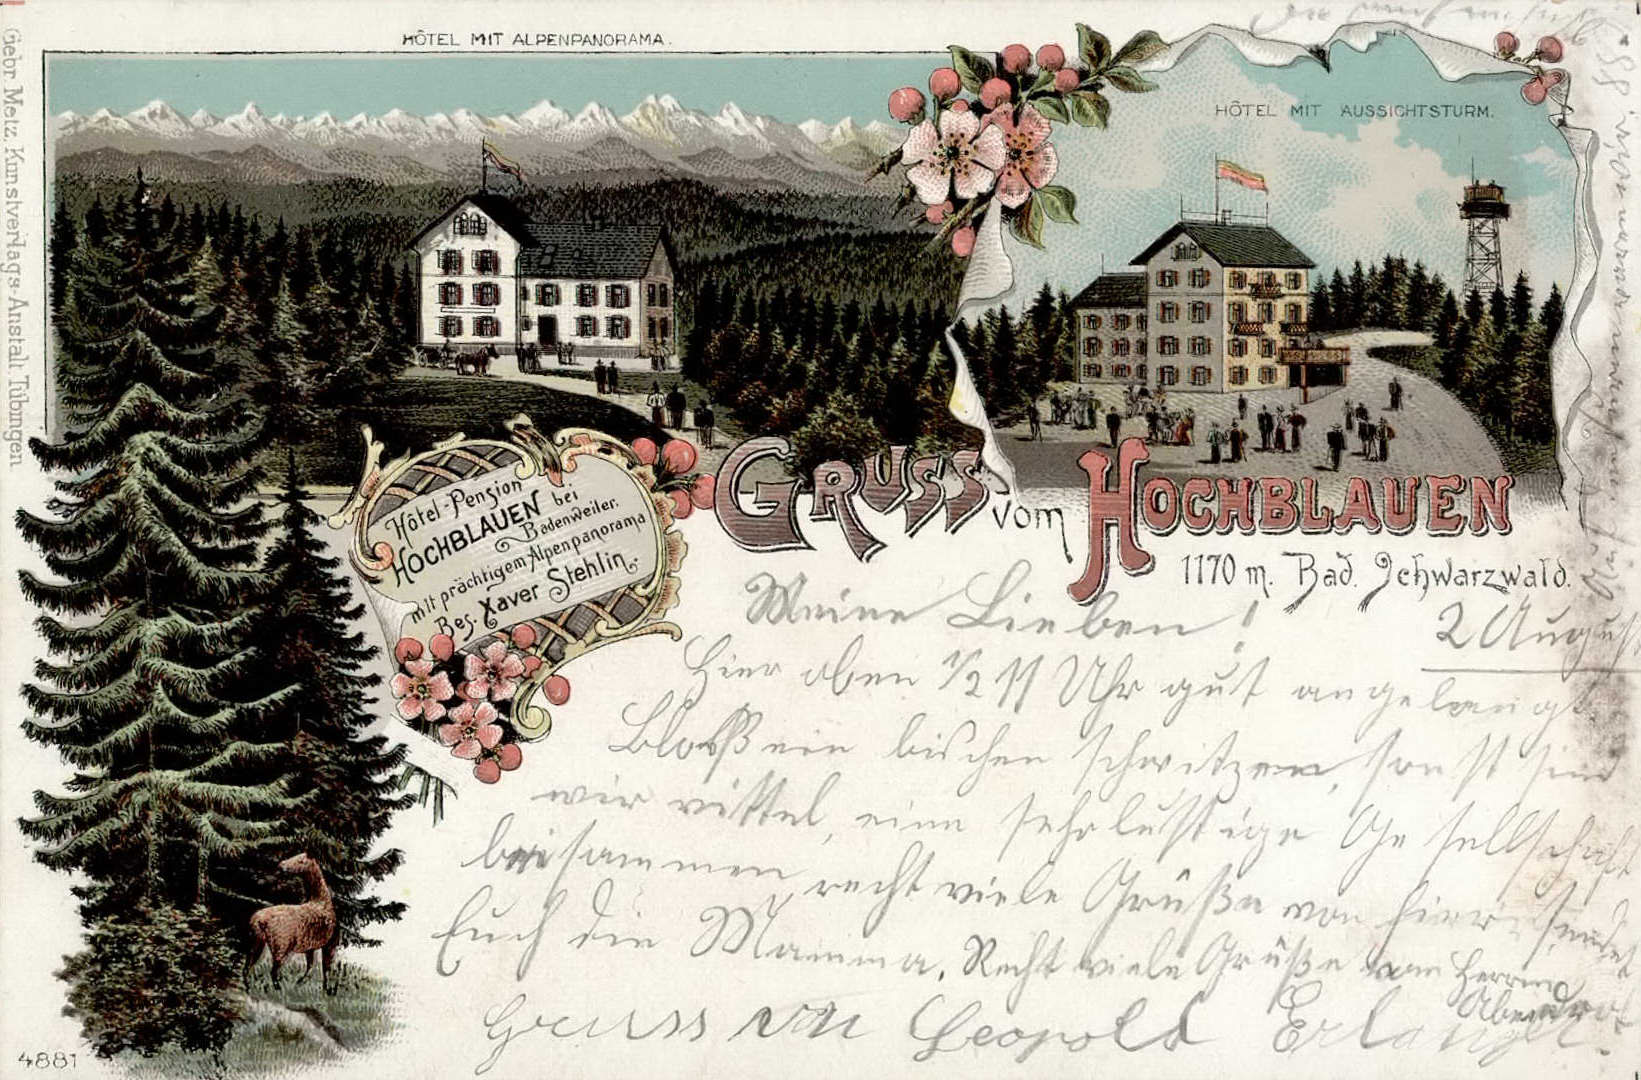 HÔTEL MIT ALPENPANORAMA.
HÔTEL MIT AUSSICHTSTURM.
Gebr. Metz, Kunstverlags-Anstalt Tübingen
Hôtel-Pension
HOCHBLAUEN bei
Badenweiler.
mit prächtigem Alpenpanorama
Bes. Xaver Stehlin.
GRUSS vom HOCHBLAUEN
1170 m. Bad. Schwarzwald.
2 August
Meine Lieben!
Hier oben 1/2 11 Uhr gut angelangt
Bloß ein bischen schwitzen, sonst sind
wir fidel, eine sehr lustige Gesellschaft
beisammen, recht viele Grüße von hier sendet
Euch die Mamma. Recht viele Grüße von Herrn
Gruss von Leopold Erlanger
4881